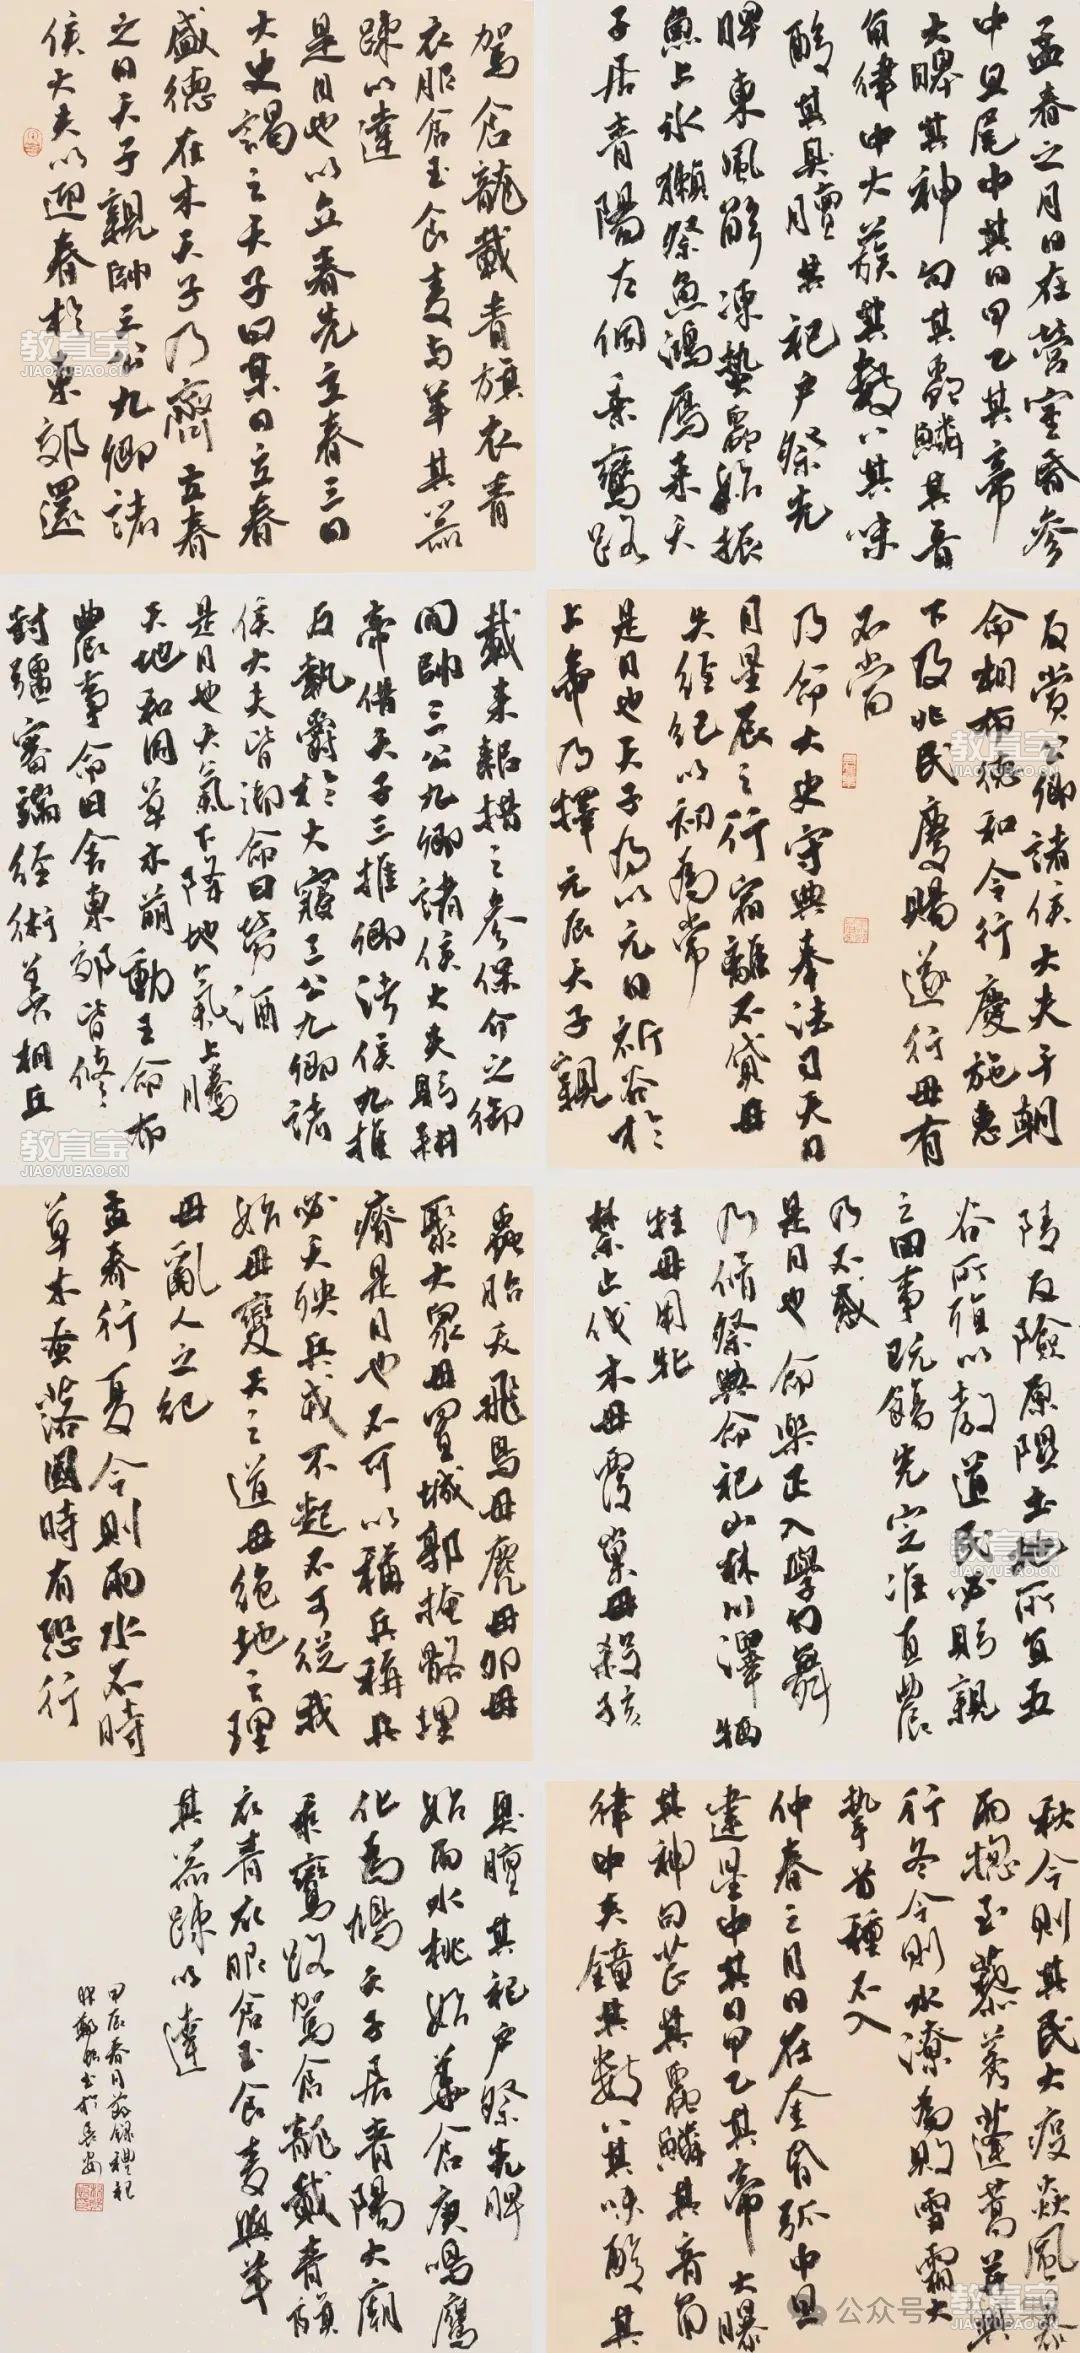 孟春之月日在營室昏參
中旦尾中其日甲乙其帝
大皞其神句其蟲鱗其音
角律中大蔟其數八其味
酸其臭膻其祀户祭先
脾東風解凍蟄蟲始振
魚上冰獺祭魚鴻鴈来天
子居青陽左個乘鸞路
駕倉龍載青旗衣青
衣服倉玉食麦与羊其器
疎以達
是月也以立春先立春三日
大史謁之天子曰某日立春
盛德在木天子乃齊立春
之日天子親帥三公九卿諸
侯大夫以迎春於東郊還
反賞公卿諸侯大夫于朝
命相布德和令行慶施惠
下及兆民慶賜遂行毋有
不當
乃命大史守典奉法司天日
月星辰之行宿離不貸毋
失經紀以初為常
是月也天子乃以元日祈谷於
上帝乃擇元辰天子親
載耒耜措之参保介之御
間帥三公九卿諸侯大夫躬耕
帝借天子三推卿诸侯九推
反執爵於大寢三公九卿諸
侯大夫皆御命曰勞酒
是月也天氣下降地氣上騰
天地和同草木萌動王命布
農事命田舍東郊皆修
封疆審端徑術善相丘
陵反險原隰土地所宜五
谷所殖以教道民必躬親
之田事既飭先定准直農
乃不惑
是月也命樂正入學習舞
乃脩祭典命祀山林川澤牺
牲毋用牝
禁止伐木毋覆巢毋殺孩
蟲胎夭飛鳥毋麛毋卵毋
聚大眾毋置城郭掩骼埋
胔是月也不可以稱兵稱兵
必天殃兵戎不起不可從我
始毋變天之道毋絶地之理
毋亂人之紀
孟春行夏令則雨水不時
草木蚤落國時有恐行
秋令則其民大疫猋風暴
雨總至藜莠蓬蒿并興
行冬令則水潦為敗雪霜大
摯首種不入
仲春之月日在奎昏弧中旦
建星中其日甲乙其帝大皞
其神句芒其蟲鱗其音角
律中夹鐘其數八其味酸其
臭膻其祀户祭先脾
始雨水桃始華倉庚鳴鷹
化為鳩天子居青陽大廟
乘鸞路駕倉龍載青旗
衣青衣服倉玉食麦與羊
其器疎以達
甲辰春月節錄禮記
書於長安
教育宝
JIAOYUBAO.CN
教育宝
JIAOYUBAO.CN
教育宝
JIAOYUBAO.CN
教育宝
JIAOYUBAO.CN
教育宝
JIAOYUBAO.CN
教育宝
JIAOYUBAO.CN
公众号